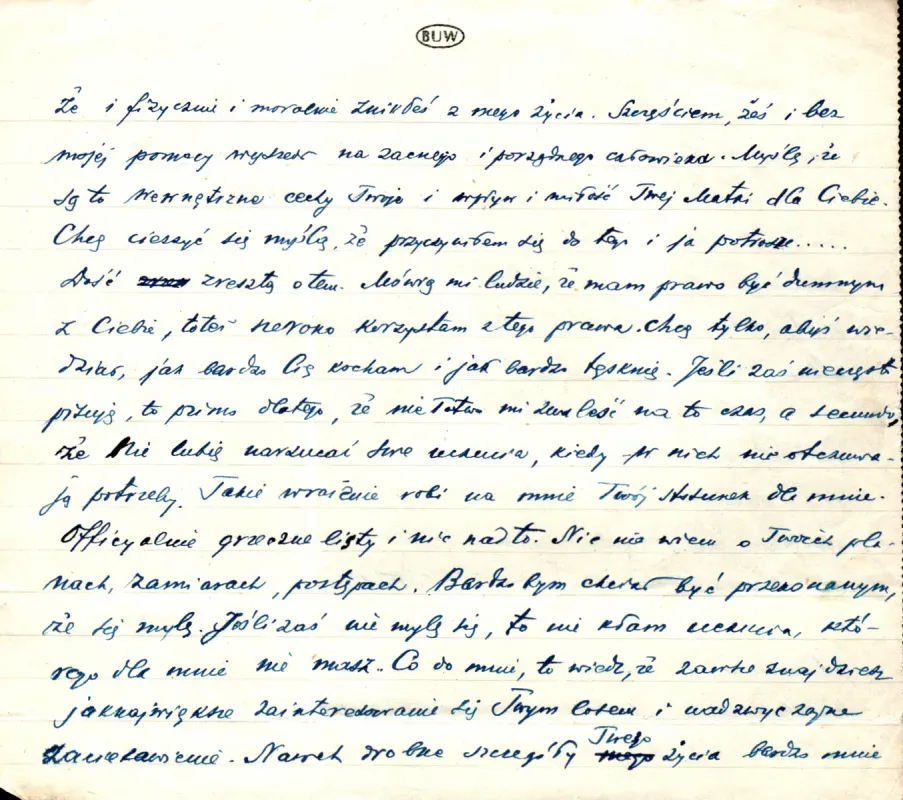 BUW
że i fizycznie i moralnie znikłeś z mego życia. Szczęściem, żeś i bez
mojej pomocy wyszedł na zacnego i porządnego człowieka. Myślę, że
są to wewnętrzne cechy Twoje i wpływ i miłość Twej Matki dla Ciebie.
Chcę cieszyć się myślą, że przyczyniłem się do tego i ja potrosze.....
Dość zresztą o tem. Mówią mi ludzie, że mam prawo być dumnym
z Ciebie, toteż szeroko korzystam z tego prawa. Chcę tylko, abyś wie-
dział, jak bardzo Cię kocham i jak bardzo tęsknię. Jeśli zaś nieczęsto
pisuję, to primo dlatego, że nie łatwo mi znaleść na to czas, a secundo,
że nie lubię narzucać swe uczucia, kiedy nich nie odczuwa-
ją potrzeby. Takie wrażenie robi na mnie Twój stosunek dla mnie.
Officyalnie grzeczne listy i nic nadto. Nic nie wiem o Twoich pla-
nach, zamiarach, postępach. Bardzo bym chciał być przekonanym,
że się mylę. Jeśli zaś nie mylę się, to nie kłam uczucia, któ-
rego dla mnie nie masz. Co do mnie, to wiedz, że zawsze znajdziesz
jaknajwiększe zainteresowanie się Twym losem i nadzwyczajne
zaciekawienie. Nawet drobne szczegóły Twego życia bardzo mnie